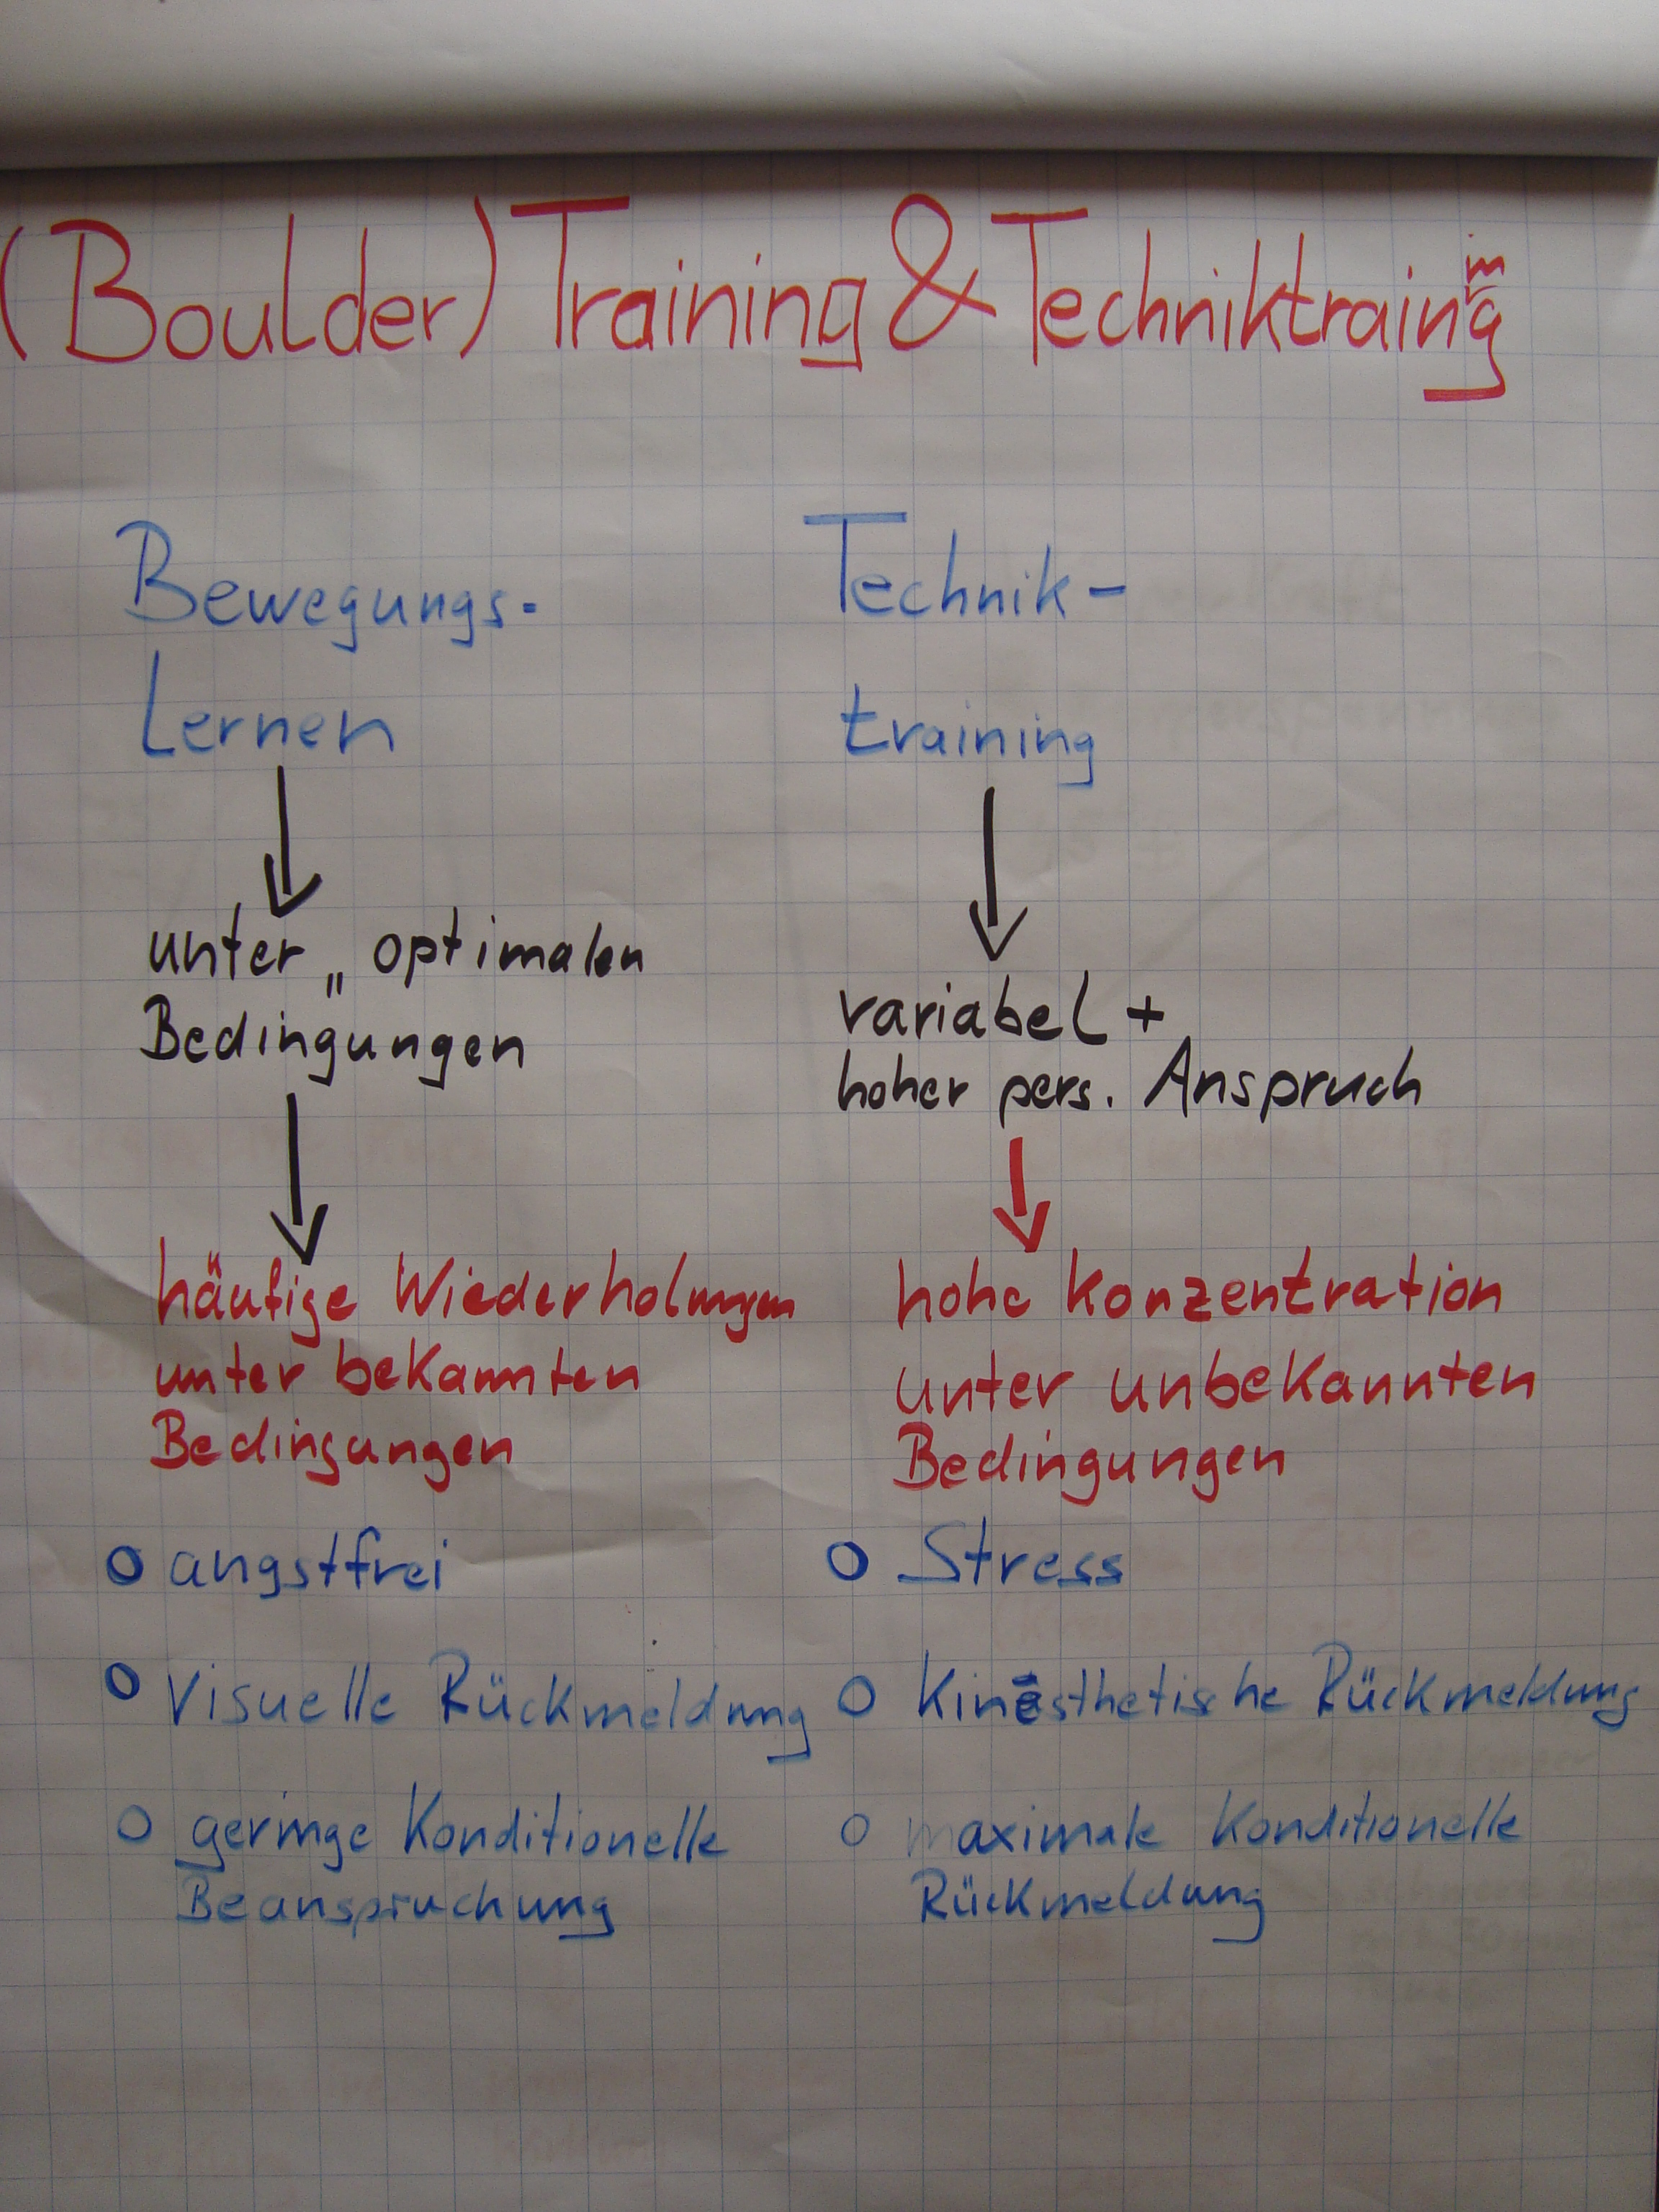 (Boulder) Training & Techniktraining
Bewegungs-
Lernen
unter „ optimalen
Bedingungen
häufige Wiederholungen
unter bekannten
Bedingungen
o angstfrei
o Visuelle Rückmeldung
o geringe Konditionelle
Beanspruchung
Technik-
training
variabel +
hoher pers. Anspruch
hohe Konzentration
unter unbekannten
Bedingungen
o Stress
o Kinästhetische Rückmeldung
o maximale Konditionelle
Rückmeldung